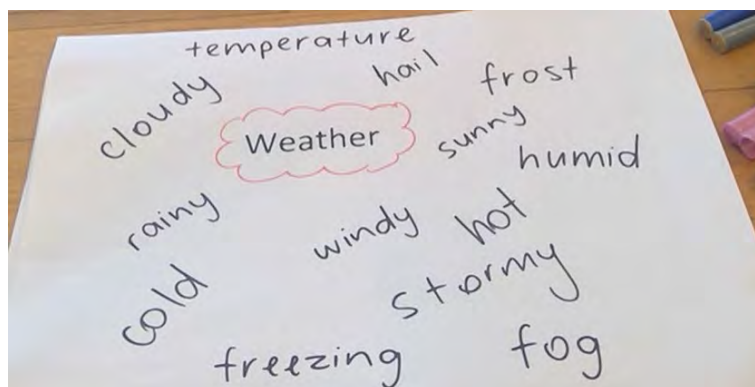 temperature
hail
frost
cloudy
Weather
sunny
humid
rainy
windy
hot
cold
stormy
freezing
fog